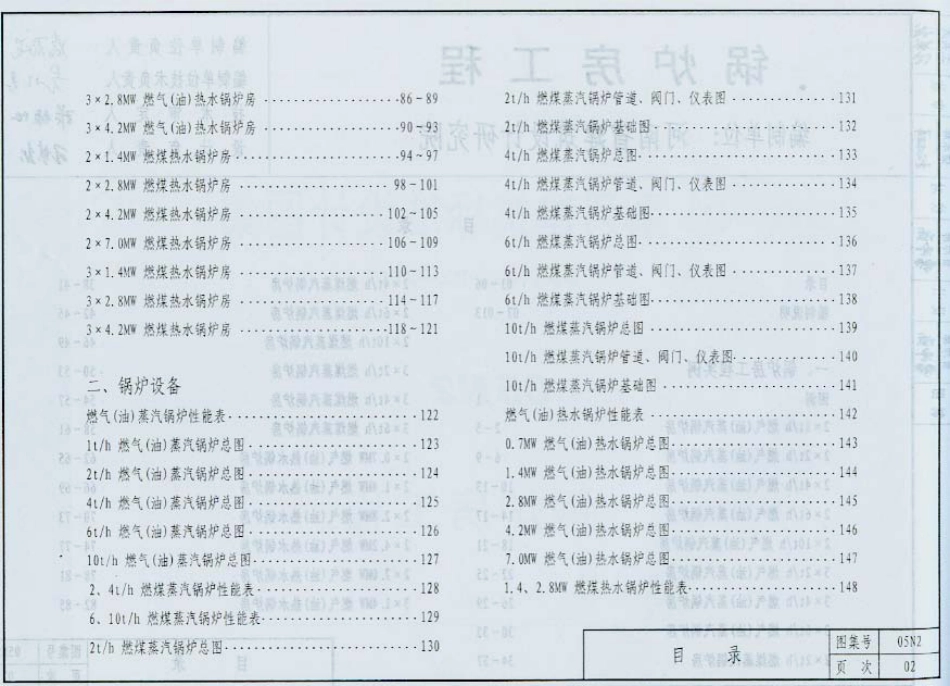 3×2.8MW 燃气(油)热水锅炉房 ·················86~89
3×4.2MW 燃气(油)热水锅炉房 ·················90~93
2×1.4MW 燃煤热水锅炉房 ·····················94~97
2×2.8MW 燃煤热水锅炉房 ····················98~101
2×4.2MW 燃煤热水锅炉房 ···················102~105
2×7.0MW 燃煤热水锅炉房 ···················106~109
3×1.4MW 燃煤热水锅炉房 ···················110~113
3×2.8MW 燃煤热水锅炉房 ···················114~117
3×4.2MW 燃煤热水锅炉房 ···················118~121
二、锅炉设备
燃气(油)蒸汽锅炉性能表·······················122
1t/h 燃气(油)蒸汽锅炉总图·····················123
2t/h 燃气(油)蒸汽锅炉总图·····················124
4t/h 燃气(油)蒸汽锅炉总图·····················125
6t/h 燃气(油)蒸汽锅炉总图·····················126
10t/h 燃气(油)蒸汽锅炉总图····················127
2、4t/h 燃煤蒸汽锅炉性能表····················128
6、10t/h 燃煤蒸汽锅炉性能表···················129
2t/h 燃煤蒸汽锅炉总图························130
2t/h 燃煤蒸汽锅炉管道、阀门、仪表图 ············131
2t/h 燃煤蒸汽锅炉基础图······················132
4t/h 燃煤蒸汽锅炉总图·······················133
4t/h 燃煤蒸汽锅炉管道、阀门、仪表图 ············134
4t/h 燃煤蒸汽锅炉基础图······················135
6t/h 燃煤蒸汽锅炉总图·······················136
6t/h 燃煤蒸汽锅炉管道、阀门、仪表图 ············137
6t/h 燃煤蒸汽锅炉基础图······················138
10t/h 燃煤蒸汽锅炉总图 ······················139
10t/h 燃煤蒸汽锅炉管道、阀门、仪表图···········140
10t/h 燃煤蒸汽锅炉基础图 ····················141
燃气(油)热水锅炉性能表 ·····················142
0.7MW 燃气(油)热水锅炉总图···················143
1.4MW 燃气(油)热水锅炉总图···················144
2.8MW 燃气(油)热水锅炉总图···················145
4.2MW 燃气(油)热水锅炉总图···················146
7.0MW 燃气(油)热水锅炉总图···················147
1.4、2.8MW 燃煤热水锅炉性能表·················148
目 录
图集号 05N2
页 次 02